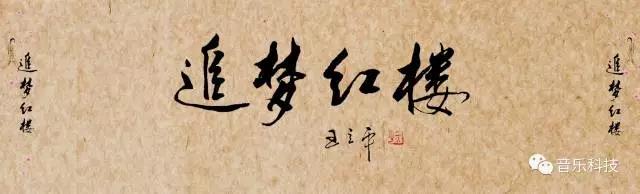 追梦红楼
追梦红楼
王立平
追梦红楼
音乐科技